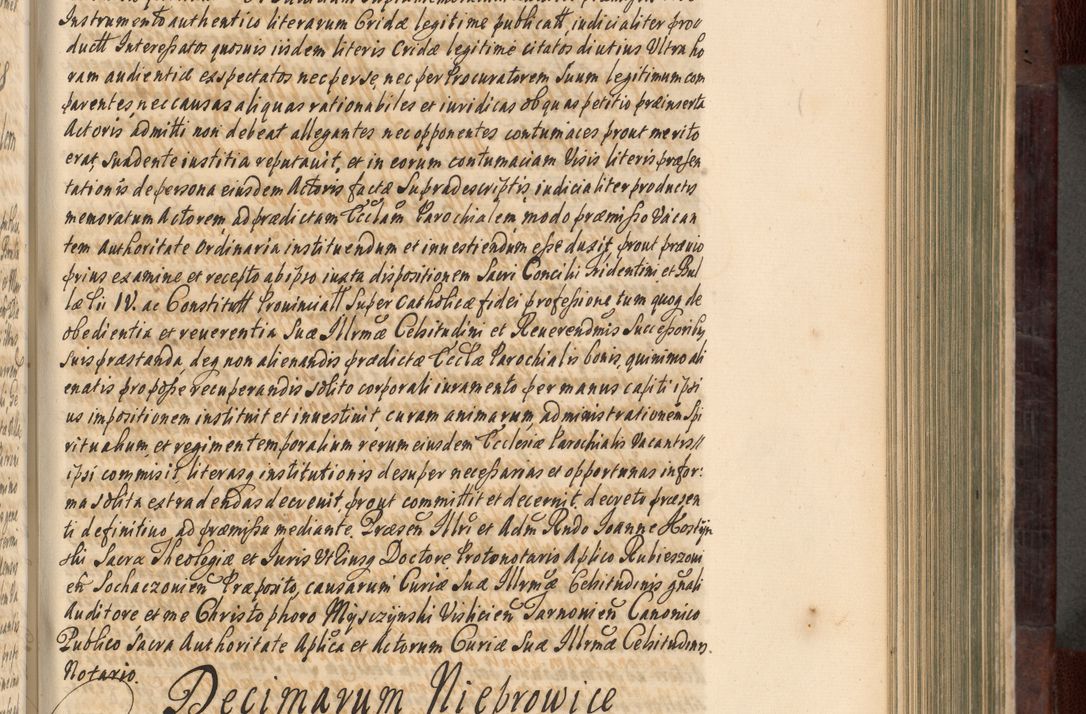 Instrumento authentico literarum Cridæ legitime publicatt, iudicialiter produ
ductt Interessatos quosuis iisdem literis Cridæ legitime citatos, diutius Ultra ho
ram audientiæ exspectatos nec per se, nec per Procuratorem Suum legitimum com
parentes, nec causas aliquas rationabiles et iuridicas ob quas petitio præinserta
Actoris admitti non debeat allegantes nec opponentes contumaces prout merito
erat, Suadente iustitia reputauit, et in eorum contumaciam Visis literis præsen
tationis de persona eiusdem Actoris factæ Supradescriptis, iudicialiter productis
memoratum Actorem, ad prædictam Eccłam Parochialem modo præmisso Vacan
tem Authoritate Ordinaria instituendum et inuestiendum esse duxit, prout præuio
prius examine et recepto ab ipso iuxta dispositionem Sacri Concilii Tridentini et Bul
læ Pii IV. ac Constitutt Prouinciall Super Catholicæ fidei professione tum quoq de
obedientia et reuerentia Suæ Illrmæ Celsitudini et Reuerendmis Successoribus
suis præstanda, deq non alienandis prædictæ Ecclæ Parochialis bonis, quinimo ali
enatis pro posse recuperandis solito corporali iuramento per manus capiti ipsi
us impositionem instituit et inuestiuit curam animarum, administrationem Spi
ritualium, et regimen temporalium rerum eiusdem Ecclesiæ Parochialis Vacantis
ipsi commisit, literasq institutionis desuper necessarias et opportunas in for:
ma solita extradendas decreuit, prout committit et decernit. decreto præsen
ti definitiuo, ad præmissa mediante. Præsen Illri et Adm Rndo Joanne Hostyn
ski Sacræ Theologiæ et Juris Utriusq Doctore Protonotario Aplico Rubieszoui
en Sochaczouien Præposito, causarum Curiæ Suæ Illrmæ Celsitudinis gnali
Auditore et me Christophoro Mysczynski Vislicien Tarnouien Canonico
Publico Sacra Authoritate Aplica et Actorum Curiæ Suæ Illrmæ Celsitudinis.
Notario.
Decimarum Niebrowice